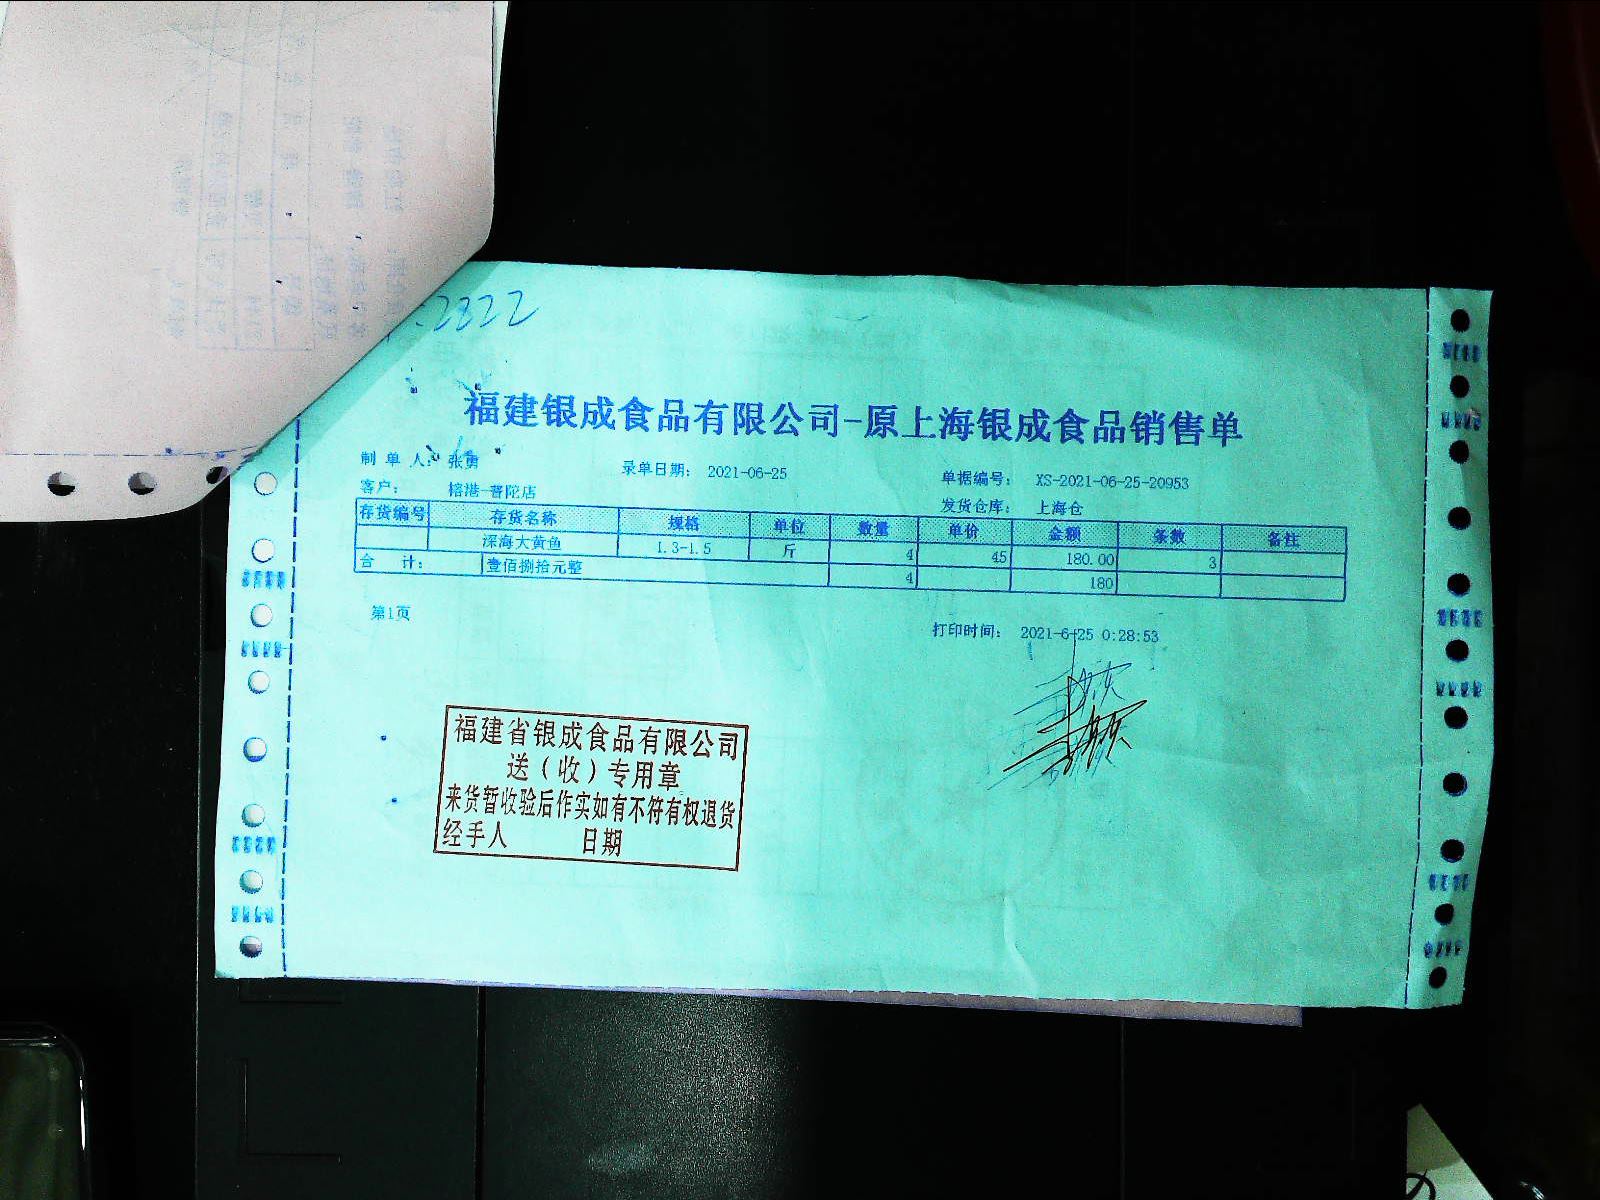 :2822
福建银成食品有限公司-原上海银成食品销售单
制 单 人: 张勇 录单日期: 2021-06-25 单据编号: XS-2021-06-25-20953
客户: 榕港-普陀店 发货仓库: 上海仓
存货编号 存货名称 规格 单位 数量 单价 金额 条数 备注
深海大黄鱼 1.3-1.5 斤 4 45 180.00 3
合 计: 壹佰捌拾元整 4 180
第1页
打印时间: 2021-6-25 0:28:53
福建省银成食品有限公司
送（收）专用章
来货暂收验后作实如有不符有权退货
经手人 日期